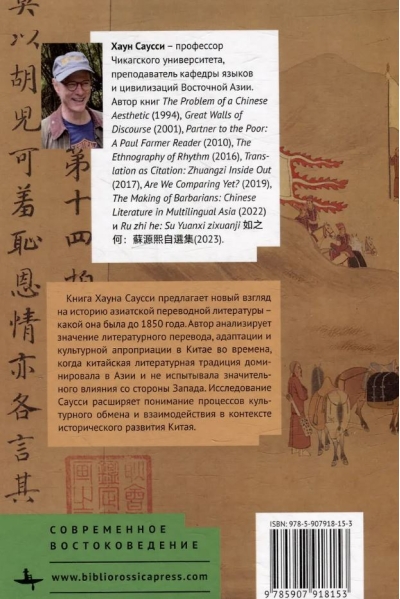 莫以胡兒可羞恥恩情亦各言其
第十四拍
Хаун Саусси – профессор
Чикагского университета,
преподаватель кафедры языков
и цивилизаций Восточной Азии.
Автор книг The Problem of a Chinese
Aesthetic (1994), Great Walls of
Discourse (2001), Partner to the Poor:
A Paul Farmer Reader (2010), The
Ethnography of Rhythm (2016), Trans-
lation as Citation: Zhuangzi Inside Out
(2017), Are We Comparing Yet? (2019),
The Making of Barbarians: Chinese
Literature in Multilingual Asia (2022)
и Ru zhi he: Su Yuanxi zixuanji 如之
何：蘇源熙自選集(2023).
Книга Хауна Саусси предлагает новый взгляд
на историю азиатской переводной литературы –
какой она была до 1850 года. Автор анализирует
значение литературного перевода, адаптации и
культурной апроприации в Китае во времена,
когда китайская литературная традиция доми-
нировала в Азии и не испытывала значитель-
ного влияния со стороны Запада. Исследование
Саусси расширяет понимание процессов куль-
турного обмена и взаимодействия в контексте
исторического развития Китая.
СОВРЕМЕННОЕ
ВОСТОКОВЕДЕНИЕ
www.bibliorossicapress.com
ISBN 978-5-907918-15-3
9 785907 918153